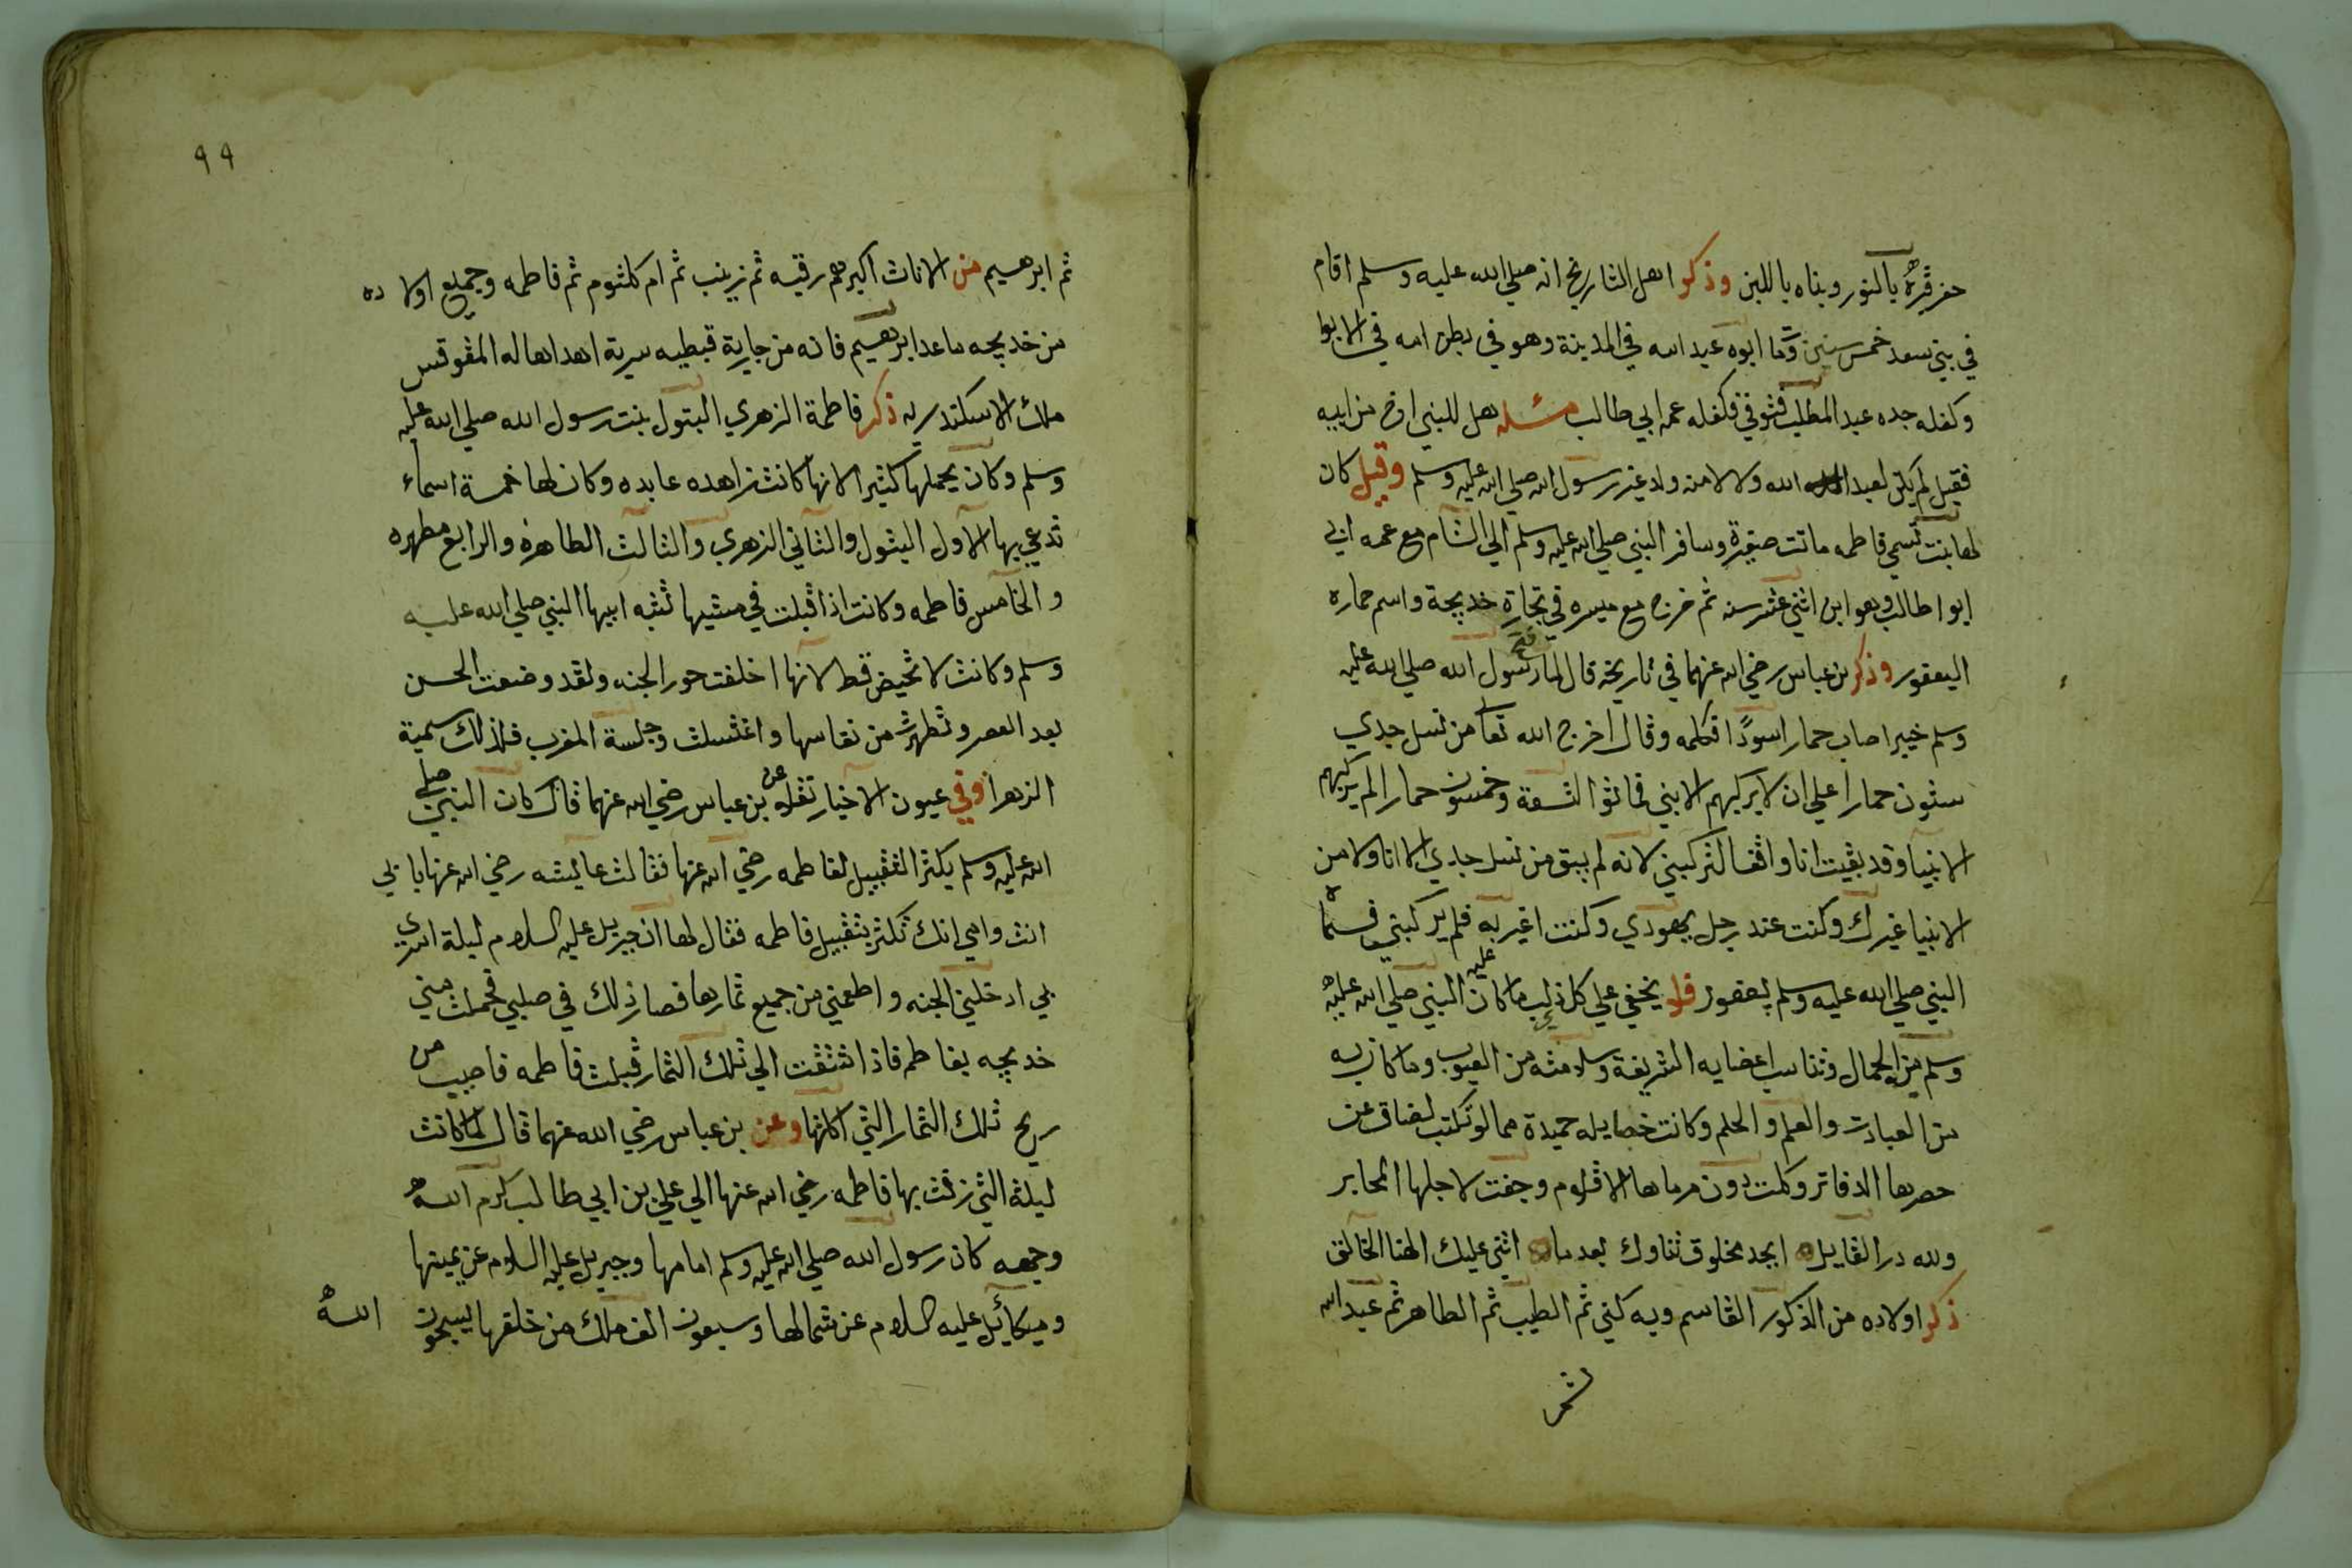 حفر قبره بالنور وبناه باللبن وذكر اهل التاريخ انه صلي الله عليه وسلم اقام
في بني سعد خمس سنين وتما ابوه عبد الله في المدينة وهو في بطن امه في الابوا
وكفله جده عبد المطلب فتوفي فكفله عمه ابي طالب مسئله هل للنبي اخ من ابيه
فقيل لم يكن لعبد الله ولا لامنه ولد غير رسول الله صلي الله عليه وسلم وقيل كان
لها بنت تسمي فاطمه ماتت صغيرة وسافر النبي صلي الله عليه وسلم الي الشام مع عمه ابي
ابوا طالب وهو ابن اثني عشر سنه ثم خرج مع ميسره في تجارة خديجة واسم حماره
اليعفور وذكر بن عباس رضي الله عنهما في تاريخه قال لما فتح رسول الله صلي الله عليه
وسلم خيبر اصاب حمار اسودًا فكلمه وقال اخرج الله تعا من نسل جدي
ستون حمارا علي ان لا يركبهم الا نبي فماتوا التسعة وخمسون حمارا لم يركبهم
الا نبيا وقد بقيت انا واقفا لتركبني لانه لم يبق من نسل جدي الا انا ولا من
الانبيا غيرك وكنت عند رجل يهودي وكنت اغير به فلم يركبني فسماه
النبي صلي الله عليه وسلم يعفور فلا يخفي علي كل ذي لب ما كان عليه النبي صلي الله عليه
وسلم من الجمال وتناسب اعضايه الشريفة وسلامته من العيوب وما كان به
من العبادت والعلم والحلم وكانت خصايله حميدة مما لو تكتب لضاق عن
حصرها الدفاتر وكلت دون مرماها الاقلام وجفت لاجلها المحابر
ولله در القايل ايجد مخلوق ثناوك بعد ما اثني عليك الهنا الخالق
ذكر اولاده من الذكور القاسم وبه كني ثم الطيب ثم الطاهر ثم عبد الله
ثم
٩٩
ثم ابرهيم من الاناث اكبرهم رقيه ثم زينب ثم ام كلثوم ثم فاطمه وجميع اولاده
من خديجه ما عدا ابرهيم فانه من جارية قبطيه سرية اهداها له المقوقس
ملك الاسكندريه ذكر فاطمة الزهري البتول بنت رسول الله صلي الله عليه
وسلم وكان يحملها كثير الانها كانت زاهده عابده وكان لها خمسة اسماء
تدعي بها الاول البتول والثاني الزهري والثالث الطاهره والرابع مطهره
والخامس فاطمه وكانت اذا قبلت في مشيها تشبه ابيها النبي صلي الله عليه
وسلم وكانت لا تحيض قط لانها اخلقت حور الجنه ولقد وضعت الحسن
بعد العصر وتطهرت من نفاسها واغتسلت وجلسة المغرب فلذلك سمية
الزهرا وفي عيون الاخبار نقله عن بن عباس رضي الله عنهما قال كان النبي صلي
الله عليه وسلم يكثر التقبيل لفاطمه رضي الله عنها فقالت عايشه رضي الله عنها بابي
انت وامي انك تكثر بتقبيل فاطمه فقال لها ان جبريل عليه السلام ليلة اسري
بي ادخلني الجنه واطعمني من جميع ثمارها فصار ذلك في صلبي فحملت مني
خديجه بفاطم فاذا اشتقت الي تلك الثمار قبلت فاطمه فاصيب من
ريح تلك الثمار التي اكلتها وعن بن عباس رضي الله عنهما قال لما كانت
ليلة التي زفت بها فاطمه رضي الله عنها الي علي بن ابي طالب كرم الله
وجهه كان رسول الله صلي الله عليه وسلم امامها وجبريل عليه السلام عن يمينها
وميكائيل عليه السلام عن شمالها وسبعون الف ملك من خلفها يسبحون
الله